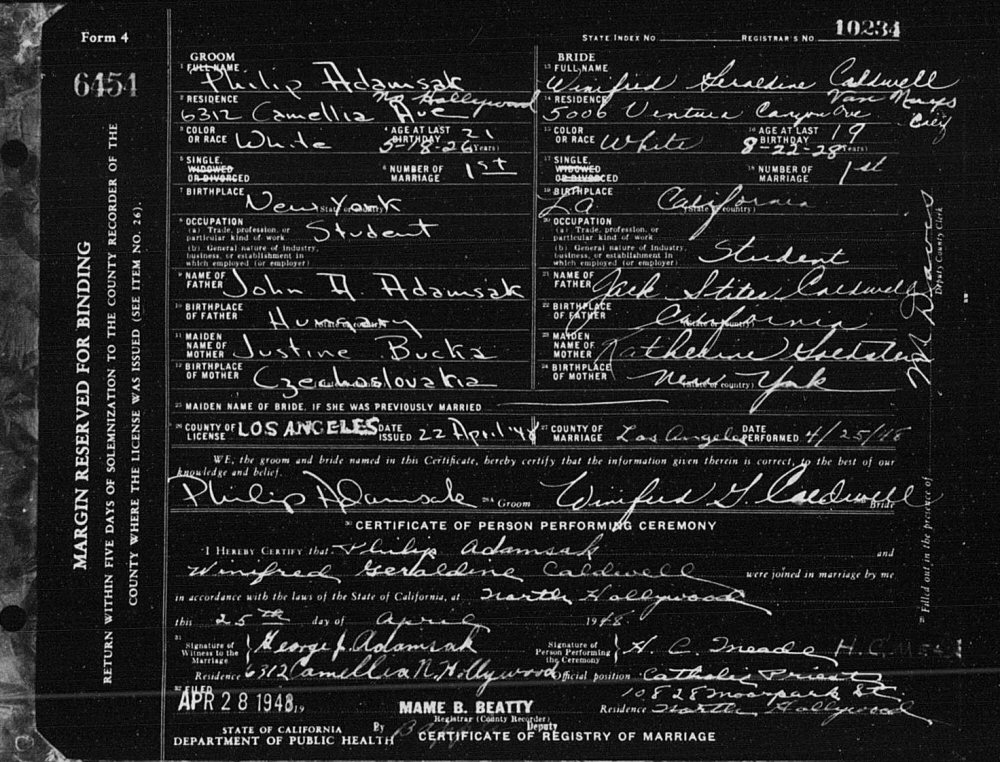 Form 4
6454
STATE INDEX NO. REGISTRAR'S NO. 10234
GROOM
1 FULL NAME Philip Adamsak
2 RESIDENCE 6312 Camellia Ave No Hollywood
3 COLOR OR RACE White 4 AGE AT LAST BIRTHDAY 21 (Years) 5-18-26
5 SINGLE, WIDOWED OR DIVORCED 6 NUMBER OF MARRIAGE 1st
7 BIRTHPLACE New York (State or country)
8 OCCUPATION
(a) Trade, profession, or particular kind of work Student
(b) General nature of industry, business, or establishment in which employed (or employer)
9 NAME OF FATHER John A. Adamsak
10 BIRTHPLACE OF FATHER Hungary (State or country)
11 MAIDEN NAME OF MOTHER Justine Bucka
12 BIRTHPLACE OF MOTHER Czechoslovakia
BRIDE
13 FULL NAME Winifred Geraldine Caldwell
14 RESIDENCE 5006 Ventura Canyon Ave Van Nuys Calif
15 COLOR OR RACE White 16 AGE AT LAST BIRTHDAY 19 (Years) 8-22-28
17 SINGLE, WIDOWED OR DIVORCED 18 NUMBER OF MARRIAGE 1st
19 BIRTHPLACE LA California (State or country)
20 OCCUPATION
(a) Trade, profession, or particular kind of work
(b) General nature of industry, business, or establishment in which employed (or employer) Student
21 NAME OF FATHER Jack Stites Caldwell
22 BIRTHPLACE OF FATHER California (State or country)
23 MAIDEN NAME OF MOTHER Katherine
24 BIRTHPLACE OF MOTHER New York (State or country)
25 MAIDEN NAME OF BRIDE, IF SHE WAS PREVIOUSLY MARRIED
26 COUNTY OF LICENSE LOS ANGELES DATE ISSUED 22 April '48 27 COUNTY OF MARRIAGE Los Angeles DATE PERFORMED 4/25/48
WE, the groom and bride named in this Certificate, hereby certify that the information given therein is correct, to the best of our
knowledge and belief.
Philip Adamsak Groom Winifred G. Caldwell Bride
30 CERTIFICATE OF PERSON PERFORMING CEREMONY
I HEREBY CERTIFY that Philip Adamsak and
Winifred Geraldine Caldwell were joined in marriage by me
in accordance with the laws of the State of California, at North Hollywood
this 25th day of April 1948.
31 Signature of Witness to the Marriage George J. Adamsak
Residence 6312 Camellia N. Hollywood
Signature of Person Performing the Ceremony H. C. Meade
Official position Catholic Priest
Residence 10828 Moorpark St. North Hollywood
32 FILED APR 28 1948, 19
MAME B. BEATTY
Registrar (County Recorder)
By Deputy
STATE OF CALIFORNIA
DEPARTMENT OF PUBLIC HEALTH
CERTIFICATE OF REGISTRY OF MARRIAGE
MARGIN RESERVED FOR BINDING
RETURN WITHIN FIVE DAYS OF SOLEMNIZATION TO THE COUNTY RECORDER OF THE
COUNTY WHERE THE LICENSE WAS ISSUED (SEE ITEM NO. 26).
Filled out in the presence of
Deputy County Clerk